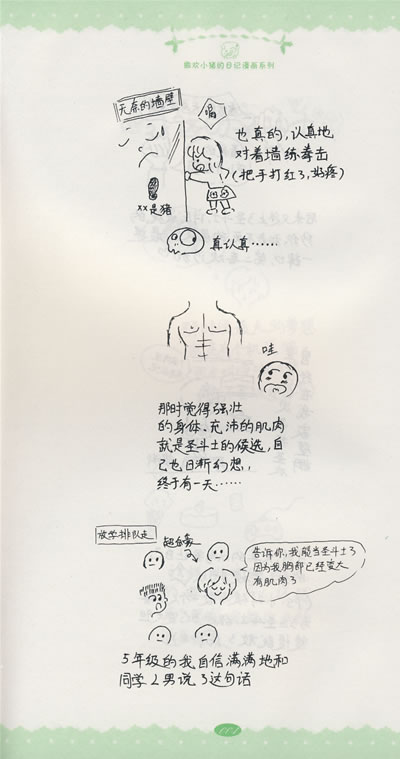 喜欢小猪的日记漫画系列
无奈的墙壁
嗝
也真的,认真地
对着墙练拳击
(把手打红了,好疼)
××是猪
真认真……
哇
那时觉得强壮
的身体、充沛的肌肉
就是圣斗士的候选,自
己也日渐幻想,
终于有一天……
放学排队走
超自豪
告诉你,我能当圣斗士了
因为我胸部已经变大
有肌肉了
5年级的我自信满满地和
同学L男说了这句话